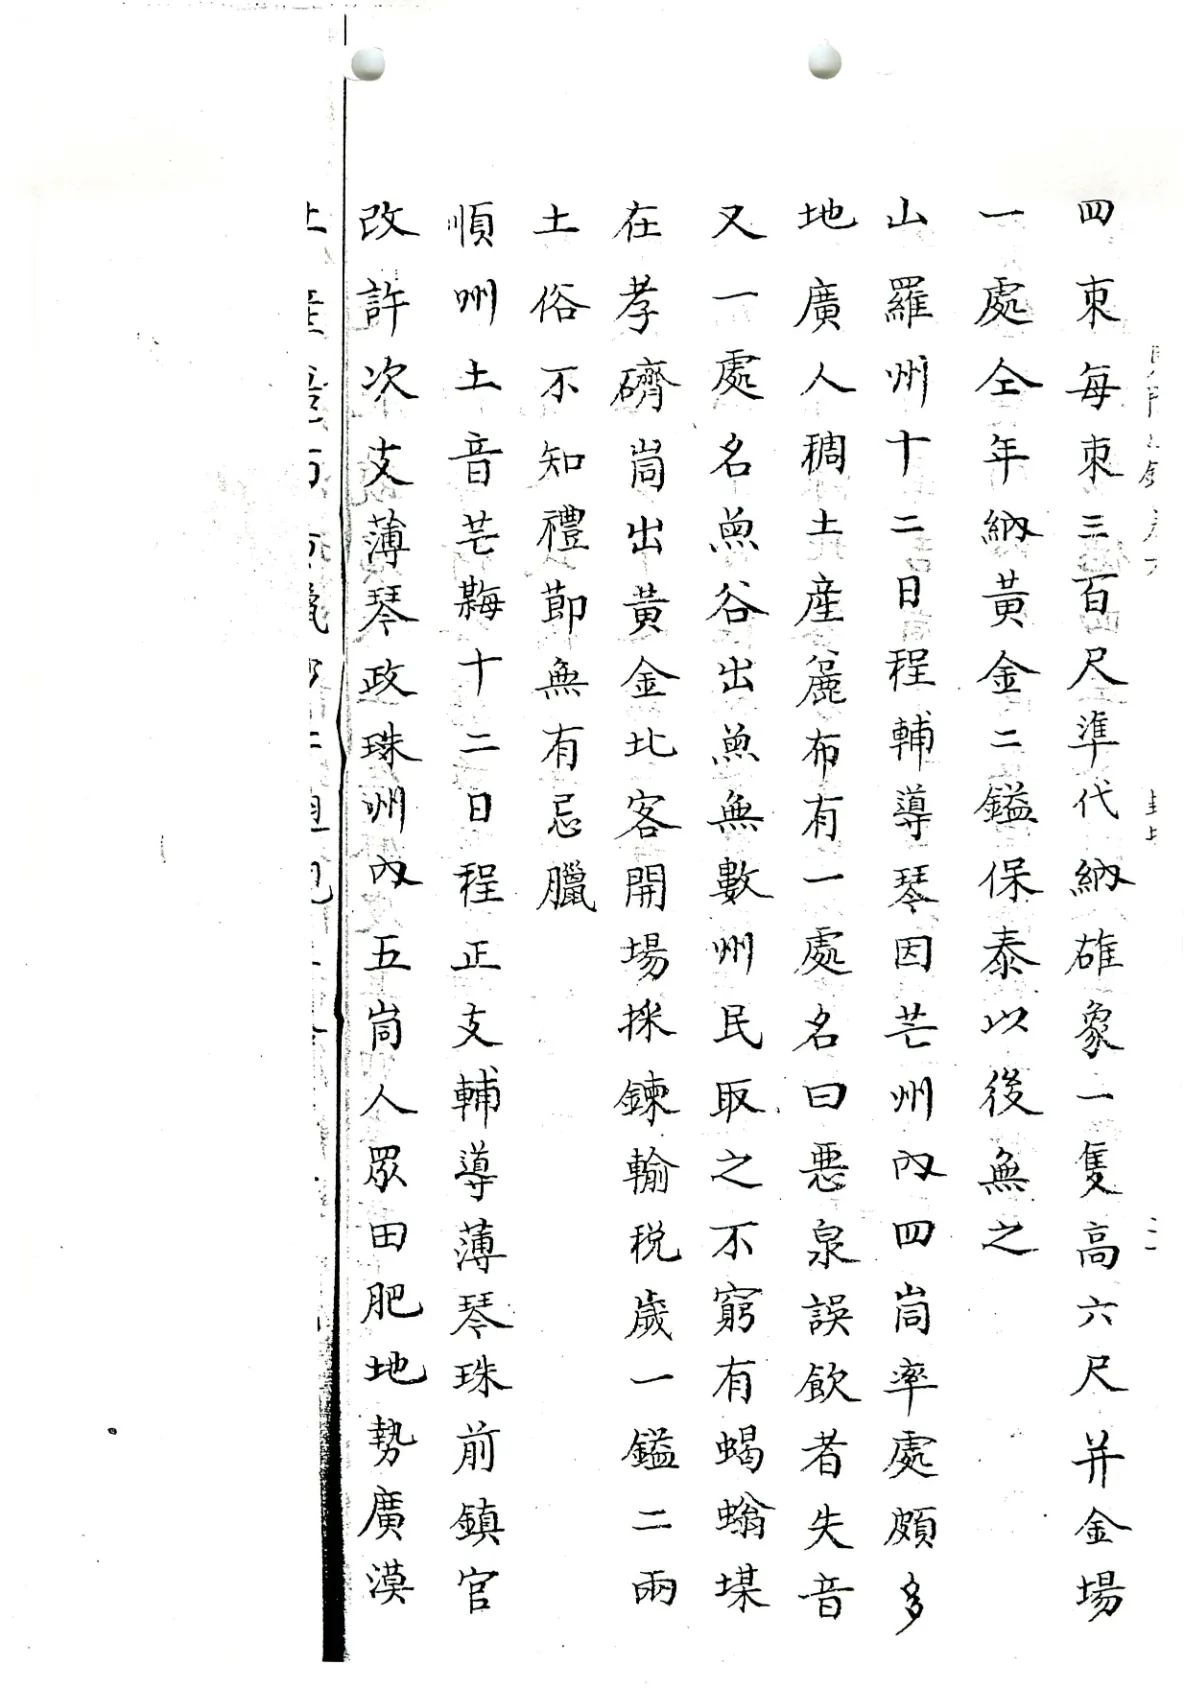 四束每束三百尺準代納雄象一隻高六尺并金場
一處仝年納黃金二鎰保泰以後無之
山羅州十二日程輔導琴因芒州內四峝率處頗多
地廣人稠土産麄布有一處名曰悪泉誤飲者失音
又一處名䲣谷出䲣無數州民取之不窮有蝎螉堞
在孝礩峝出黃金北客開場採鍊輸税歲一鎰二兩
土俗不知禮節無有忌臘
順州土音芒䵋十二日程正支輔導薄琴珠前鎮官
改許次支薄琴政珠州內五峝人眾田肥地勢廣漠